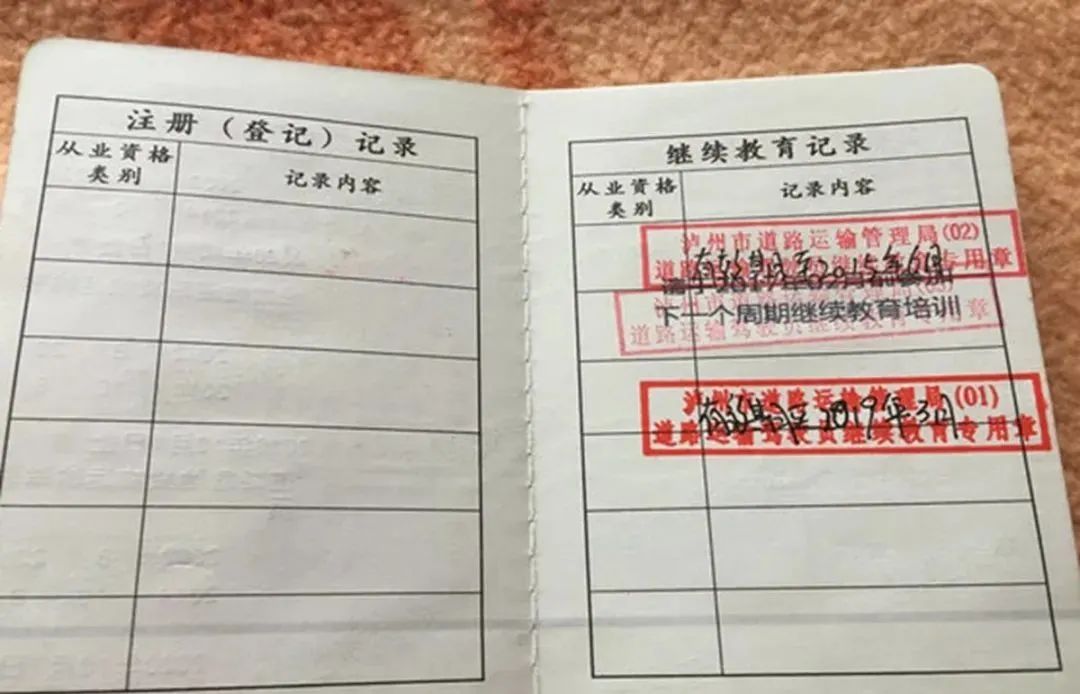 注册（登记）记录
从业资格
类别
记录内容
继续教育记录
从业资格
类别
记录内容
泸州市道路运输管理局(02)
道路运输驾驶员继续教育专用章
有效期至2015年6月
下一个周期继续教育培训
泸州市道路运输管理局
道路运输驾驶员继续教育专用章
泸州市道路运输管理局(01)
道路运输驾驶员继续教育专用章
有效期至2019年3月